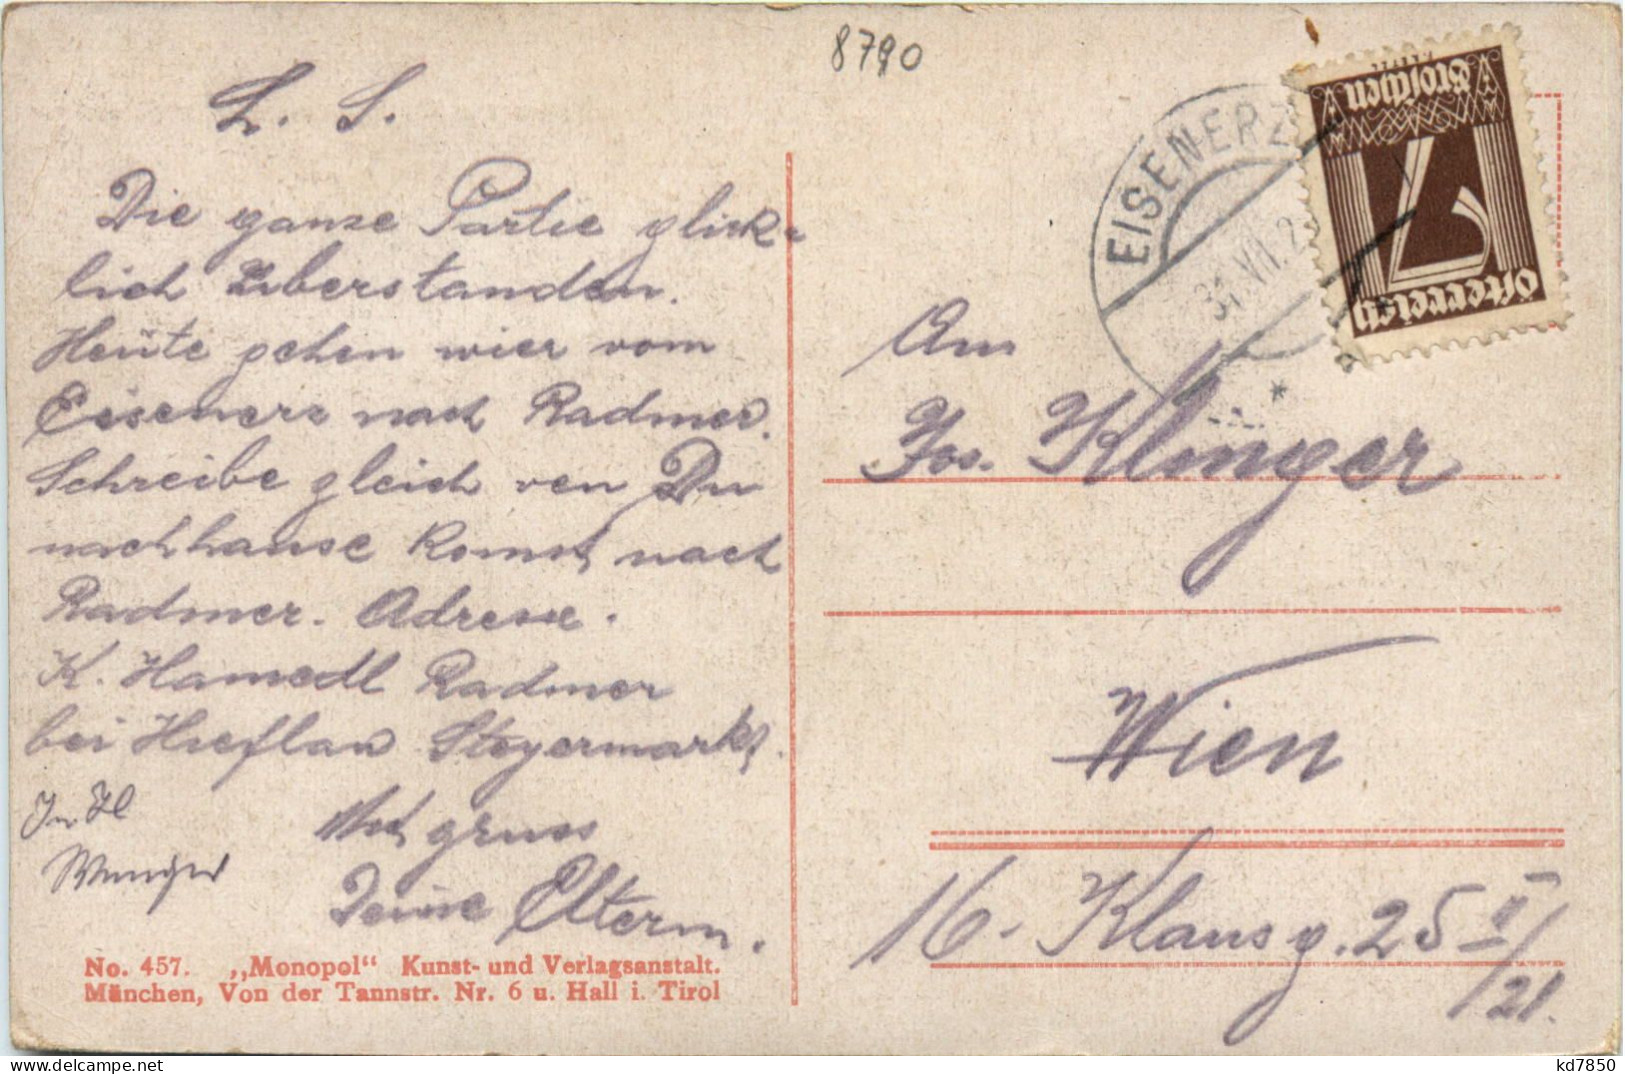 8790
L. S.
Die ganze Partie glick-
lich überstanden.
Heüte gehen wier vom
Eisenerz nach Radmer.
Schreibe gleich ven Du
nachhause komst, nach
Radmer. Adresse.
K. Hamedl Radmer
bei Hieflau Steyermark.
Mit gruss
Deine Elterm.
No. 457. „Monopol“ Kunst- und Verlagsanstalt.
München, Von der Tannstr. Nr. 6 u. Hall i. Tirol
EISENERZ
31. VII. 2
Groschen
7
Österreich
An
Jos. Klinger
Wien
16. Klausg. 25 II/
/21.
kd7850